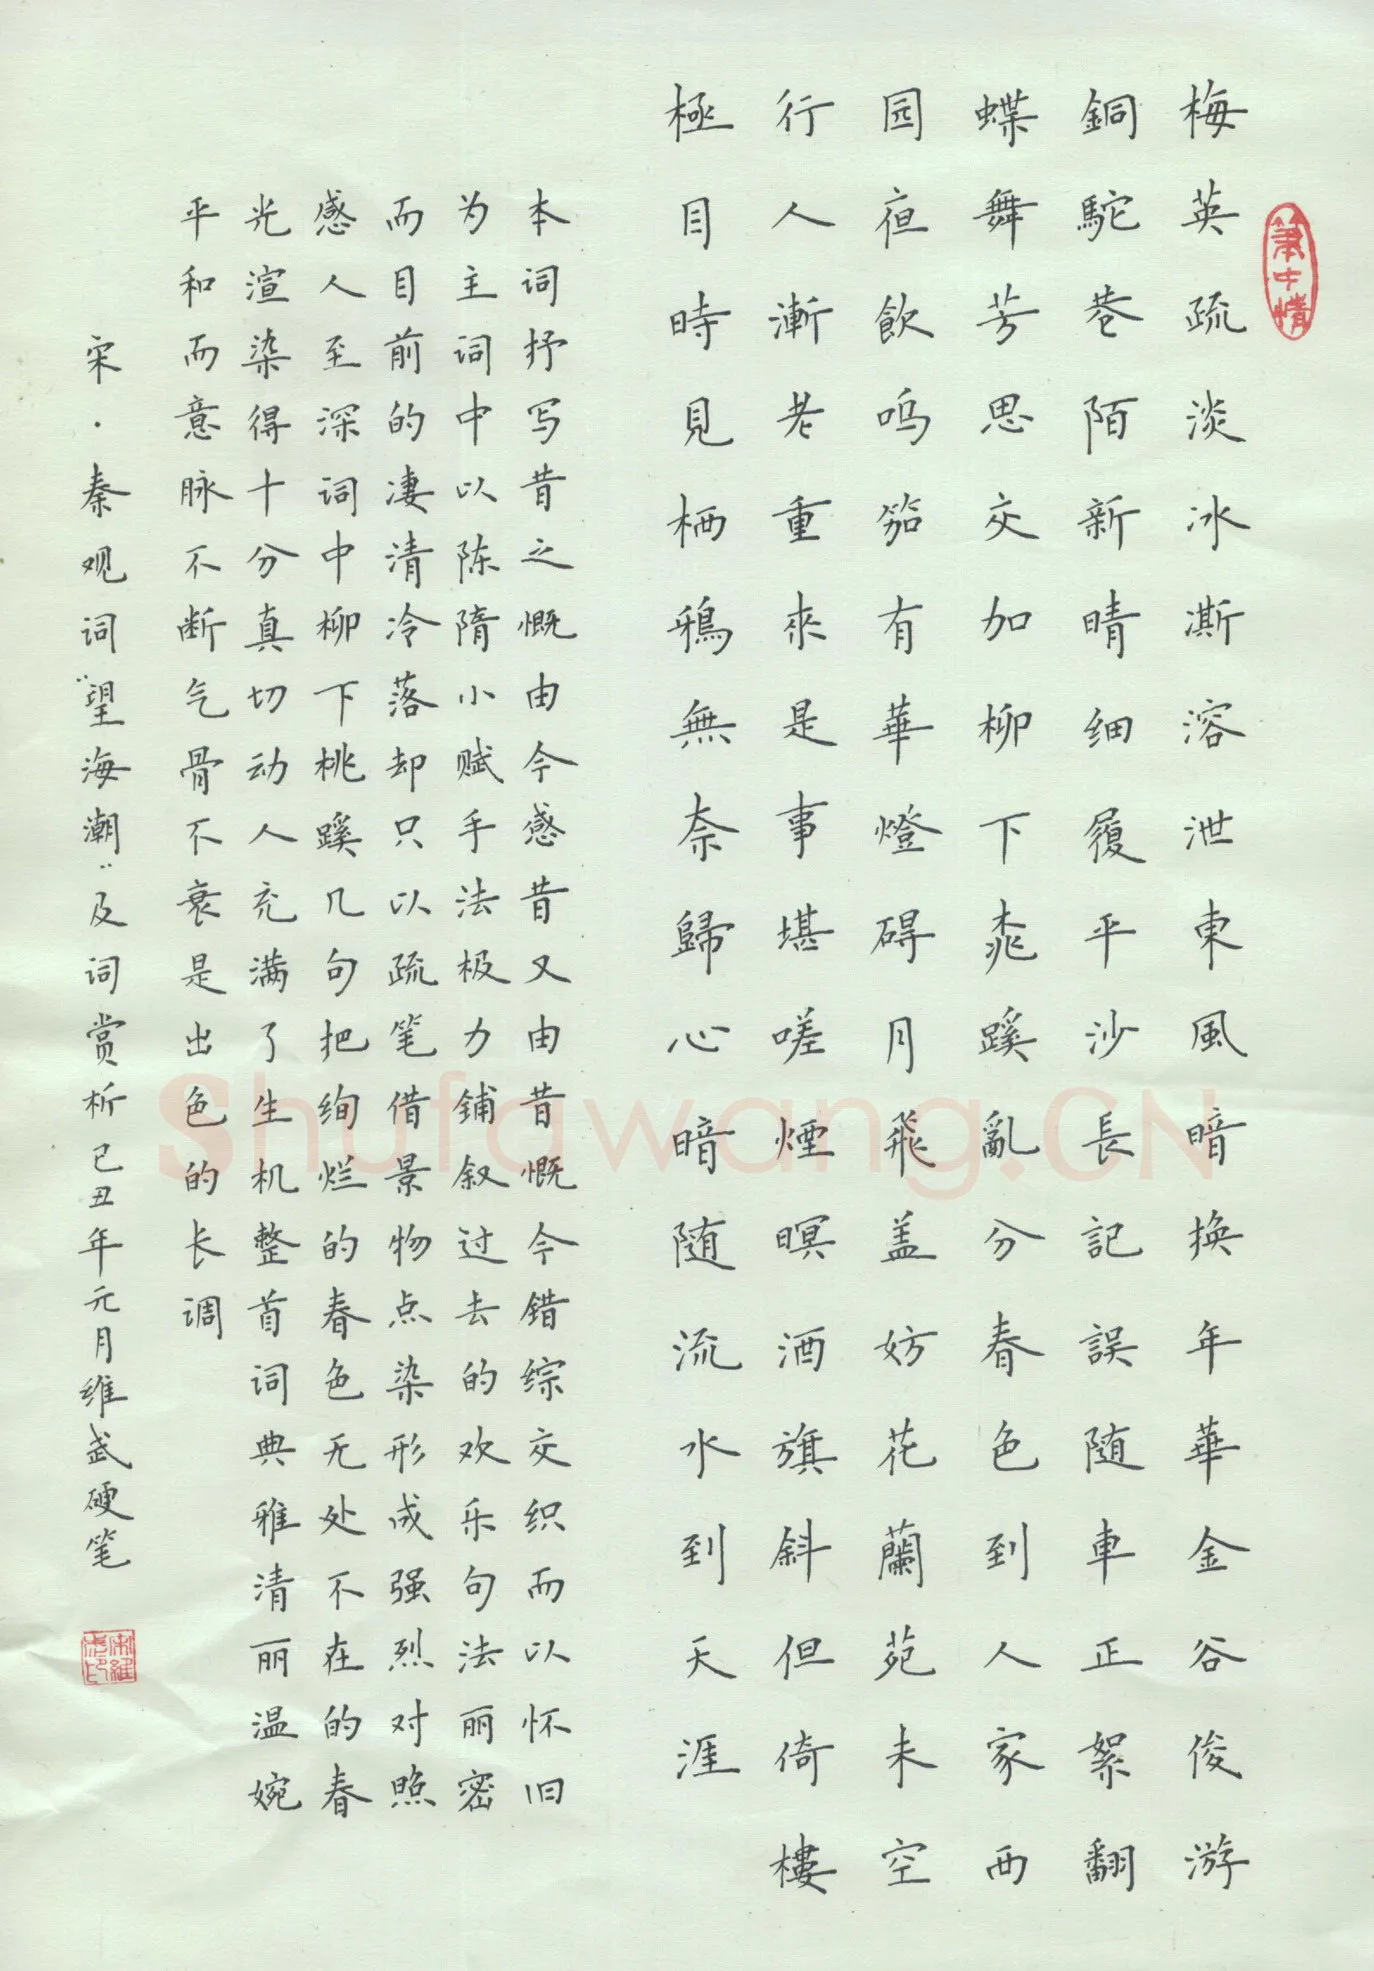 筆中情
梅英疏淡冰澌溶泄東風暗換年華金谷俊游
銅駝巷陌新晴细履平沙長記誤随車正絮翻
蝶舞芳思交加柳下桃蹊亂分春色到人家西
园夜飲鸣笳有華燈碍月飛盖妨花蘭苑未空
行人漸老重來是事堪嗟煙暝酒旗斜但倚樓
極目時見栖鴉無奈歸心暗随流水到天涯
本词抒写昔之慨由今感昔又由昔慨今错综交织而以怀旧
为主词中以陈隋小赋手法极力铺叙过去的欢乐句法丽密
而目前的凄清冷落却只以疏笔借景物点染形成强烈对照
感人至深词中柳下桃蹊几句把绚烂的春色无处不在的春
光渲染得十分真切动人充满了生机整首词典雅清丽温婉
平和而意脉不断气骨不衰是出色的长调
宋·秦观词"望海潮"及词赏析己丑年元月维武硬笔
宋維武印
Shufawang.CN